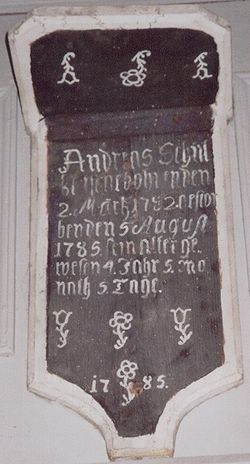 Andreas Schul
den
2. Märtz 1782. gestor
ben den 5 August
1785. sein Alter ge
wesen 4. Jahr 5. mo
nath 5. Tage.
1785.